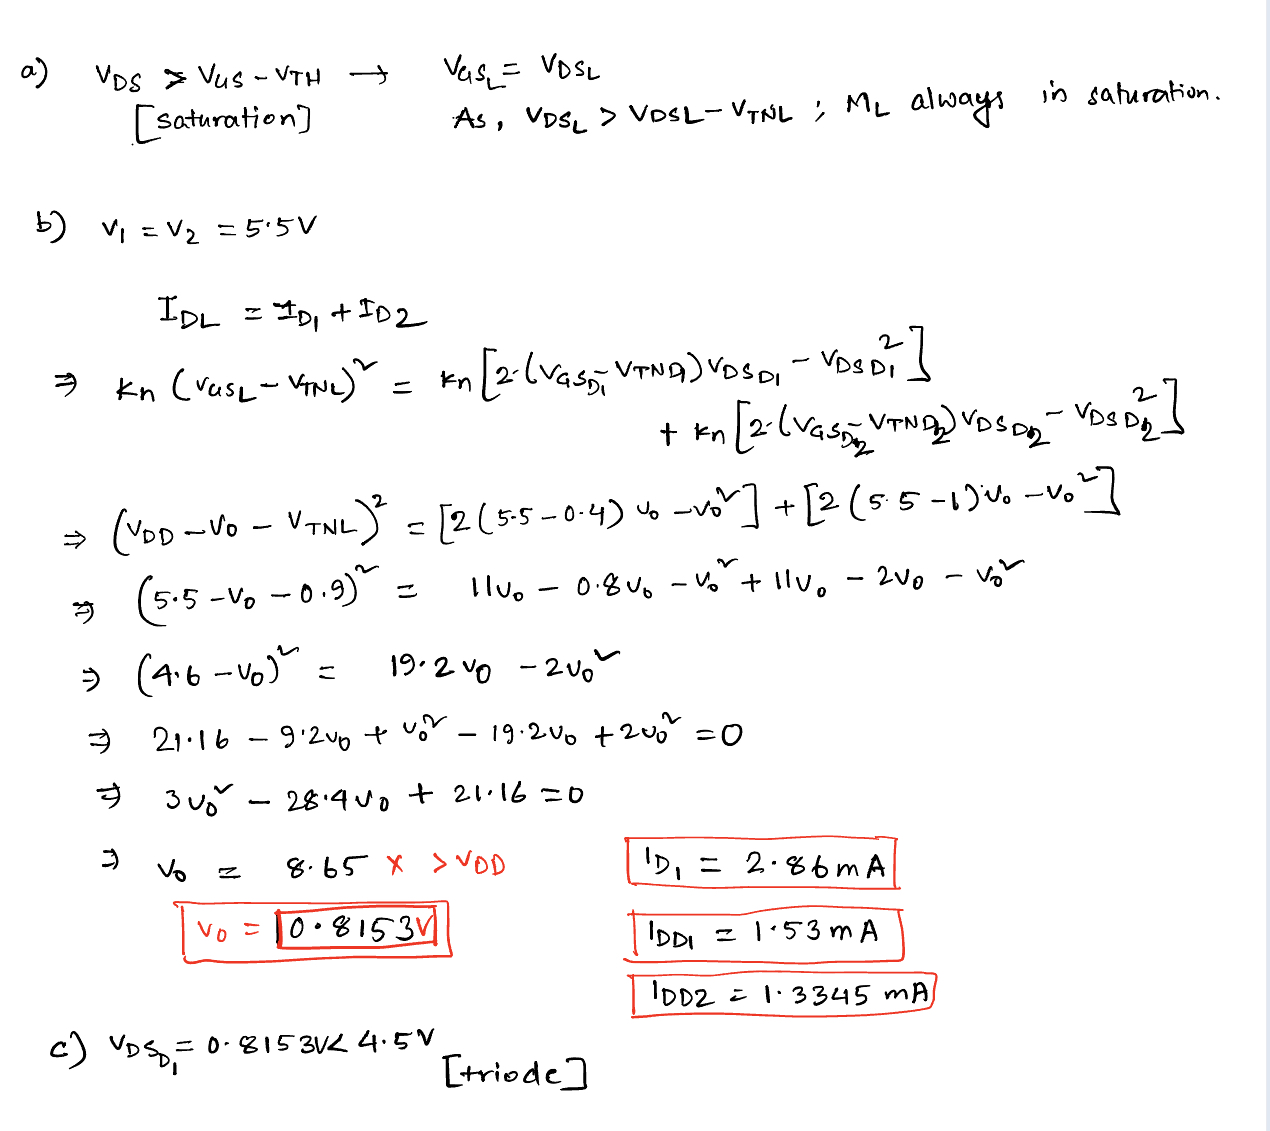 a) VDS > VGS - VTH → VGSL = VDSL
[saturation] As, VDSL > VDSL - VTNL ; ML always in saturation.
b) V1 = V2 = 5.5V
IDL = ID1 + ID2
⇒ kn (VGSL - VTNL)² = kn [2(VGSD1 - VTND1) VDSD1 - VDSD1²]
+ kn [2(VGSD2 - VTND2) VDSD2 - VDSD2²]
⇒ (VDD - Vo - VTNL)² = [2(5.5 - 0.4) Vo - Vo²] + [2(5.5 - 1) Vo - Vo²]
⇒ (5.5 - Vo - 0.9)² = 11Vo - 0.8Vo - Vo² + 11Vo - 2Vo - Vo²
⇒ (4.6 - Vo)² = 19.2Vo - 2Vo²
⇒ 21.16 - 9.2Vo + Vo² - 19.2Vo + 2Vo² = 0
⇒ 3Vo² - 28.4Vo + 21.16 = 0
⇒ Vo = 8.65 × > VDD
Vo = 0.8153V
ID1 = 2.86mA
IDD1 = 1.53mA
IDD2 = 1.3345 mA
c) VDSD1 = 0.8153V < 4.5V
[triode]